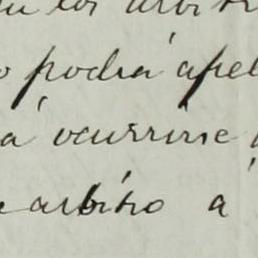 los arbitr
o podrá apel
á ocurrirse
arbitro a